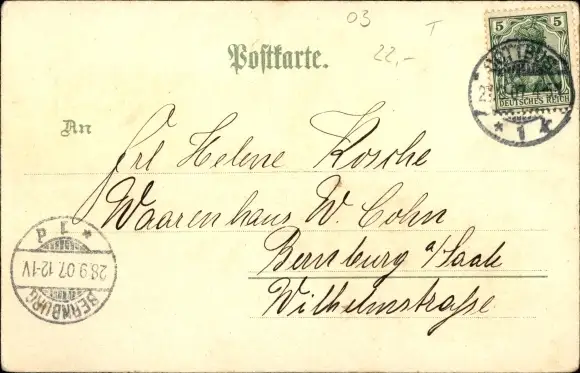 03
T
22,-
5 5
DEUTSCHES REICH
COTTBUS
* 1 k
Postkarte.
An
Frl Helene Kosche
Waarenhaus W. Cohn
Bernburg a/Saale
Wilhelmstraße
BERNBURG
28.9.07.12-1V
* 1 d